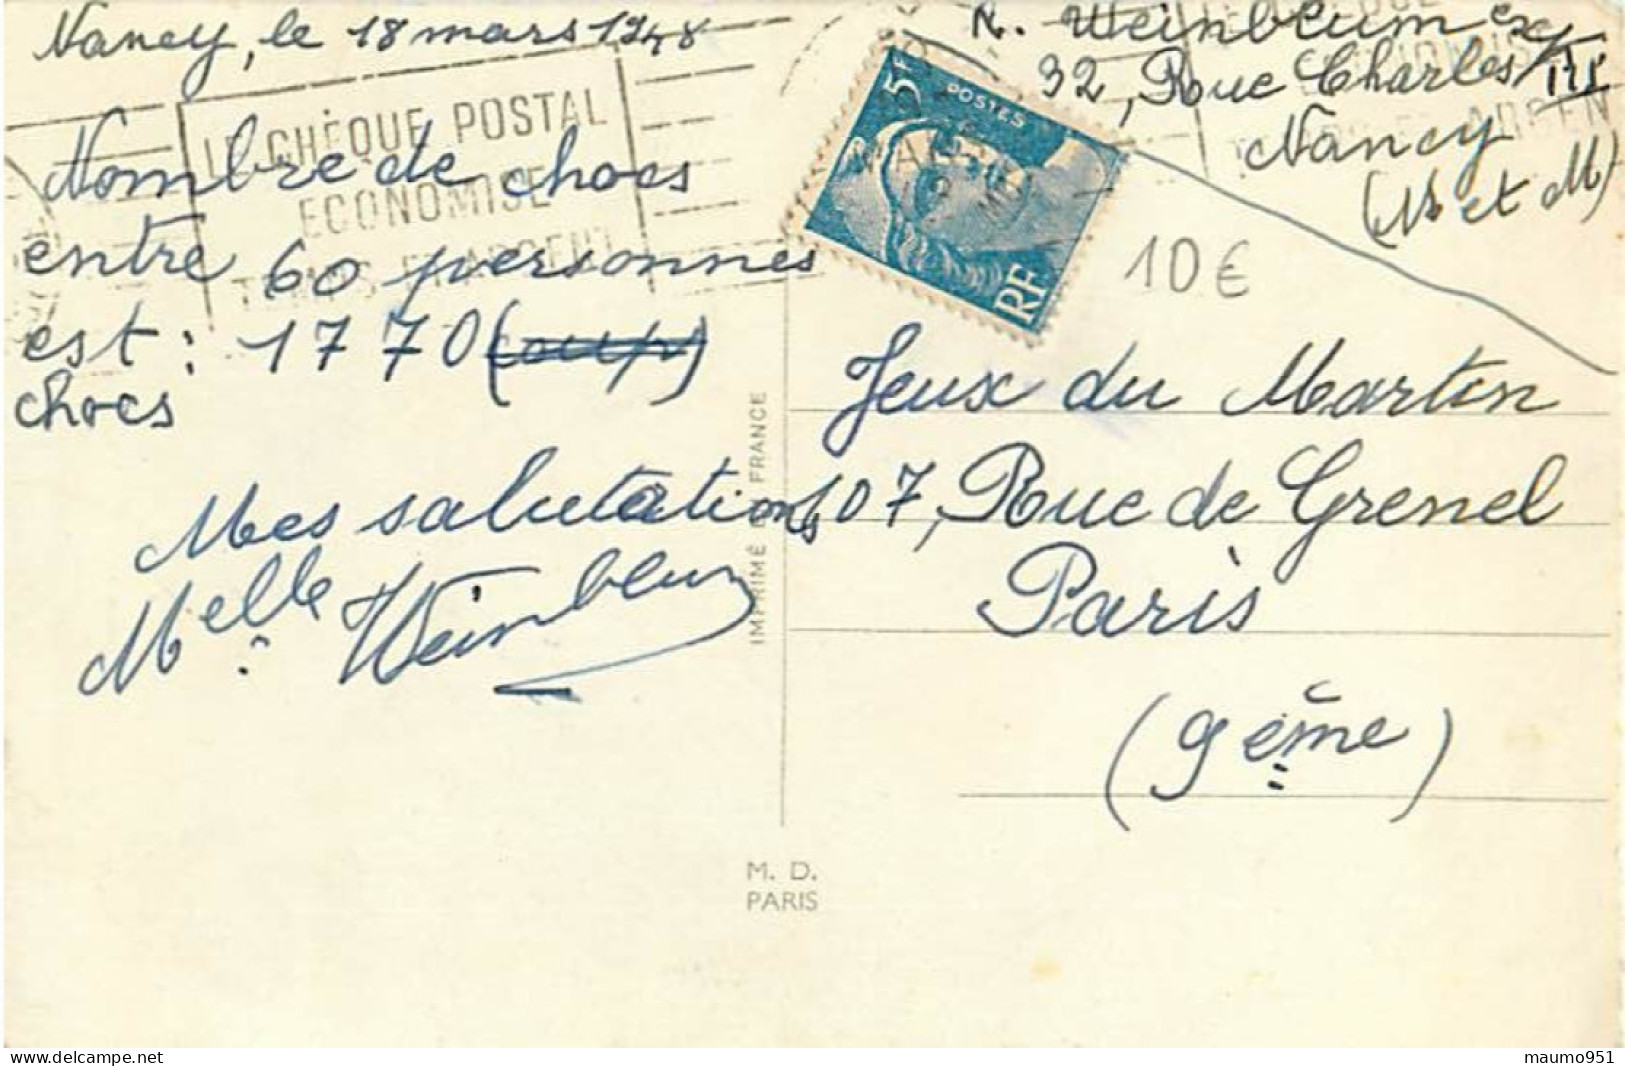 Nancy, le 18 mars 1948
LE CHÈQUE POSTAL
ÉCONOMISE
TEMPS ET ARGENT
Nombre de chocs
entre 60 personnes
est : 1770 (coup)
chocs
Mes salutations
Melle Weinbleum
R. Weinbleum
32, Rue Charles III
Nancy
(M et M)
5F
POSTES
RF
10€
Jeux du Martin
107, Rue de Grenel
Paris
(9ème)
IMPRIMÉ EN FRANCE
M. D.
PARIS
maumo951